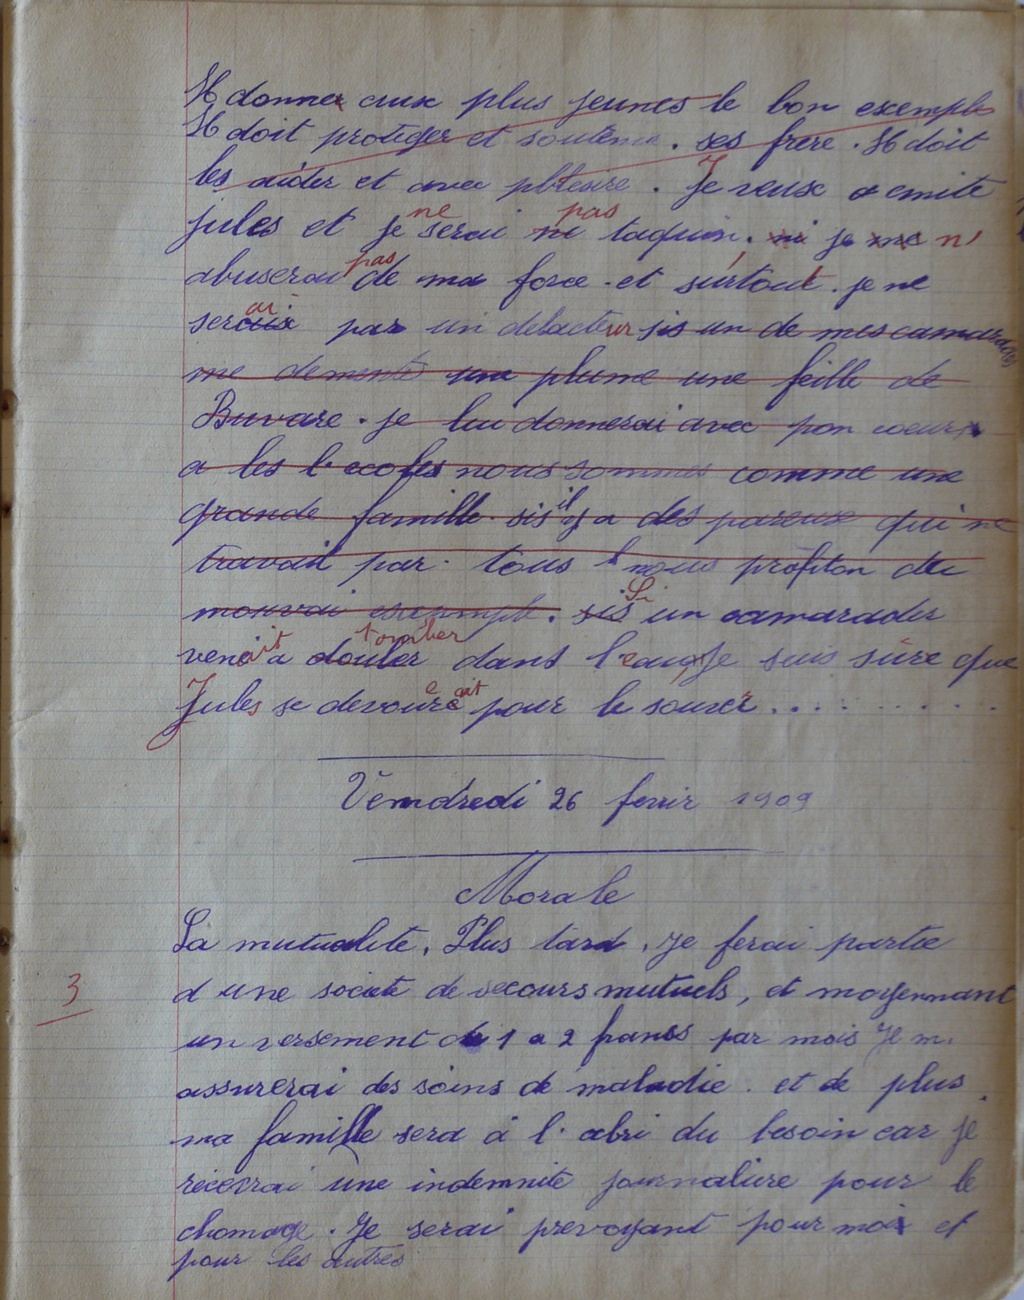 Il donner aux plus jeunes le bon exemple
Il doit protéger et soutenir. ses frere. Il doit
les aider et avec plaisire. Je veux emite
jules et je ne serai ni pas taquin. ni je me n'
abuserai pas de ma force. et surtout. je ne
seraix ai par un delacteur sis un de mes camarades
me demente une plume une feille de
Buvare. je lui donnerai avec pon coeur
a les l'ecoles nous sommes comme une
grande famille. sis il y a des pareuse qui ne
travail par. tous nous profiton du
mouvai exemple. sis Si un camarader
venait a douler tomber dans l'eau, Je suis sûre que
Jules se devouré e ait pour le souver..........
Vendredi 26 fevrir 1909
Morale
La mutualité. Plus tard, je ferai partie
3
d une societé de secours mutuels, et moyennant
un versement de 1 a 2 francs par mois Je m.
assurerai des soins de maladie. et de plus
ma famille sera à l'abri du besoin car je
recevrai une indemnité journalière pour le
chomage. Je serai prevoyant pour moi et
pour les autres